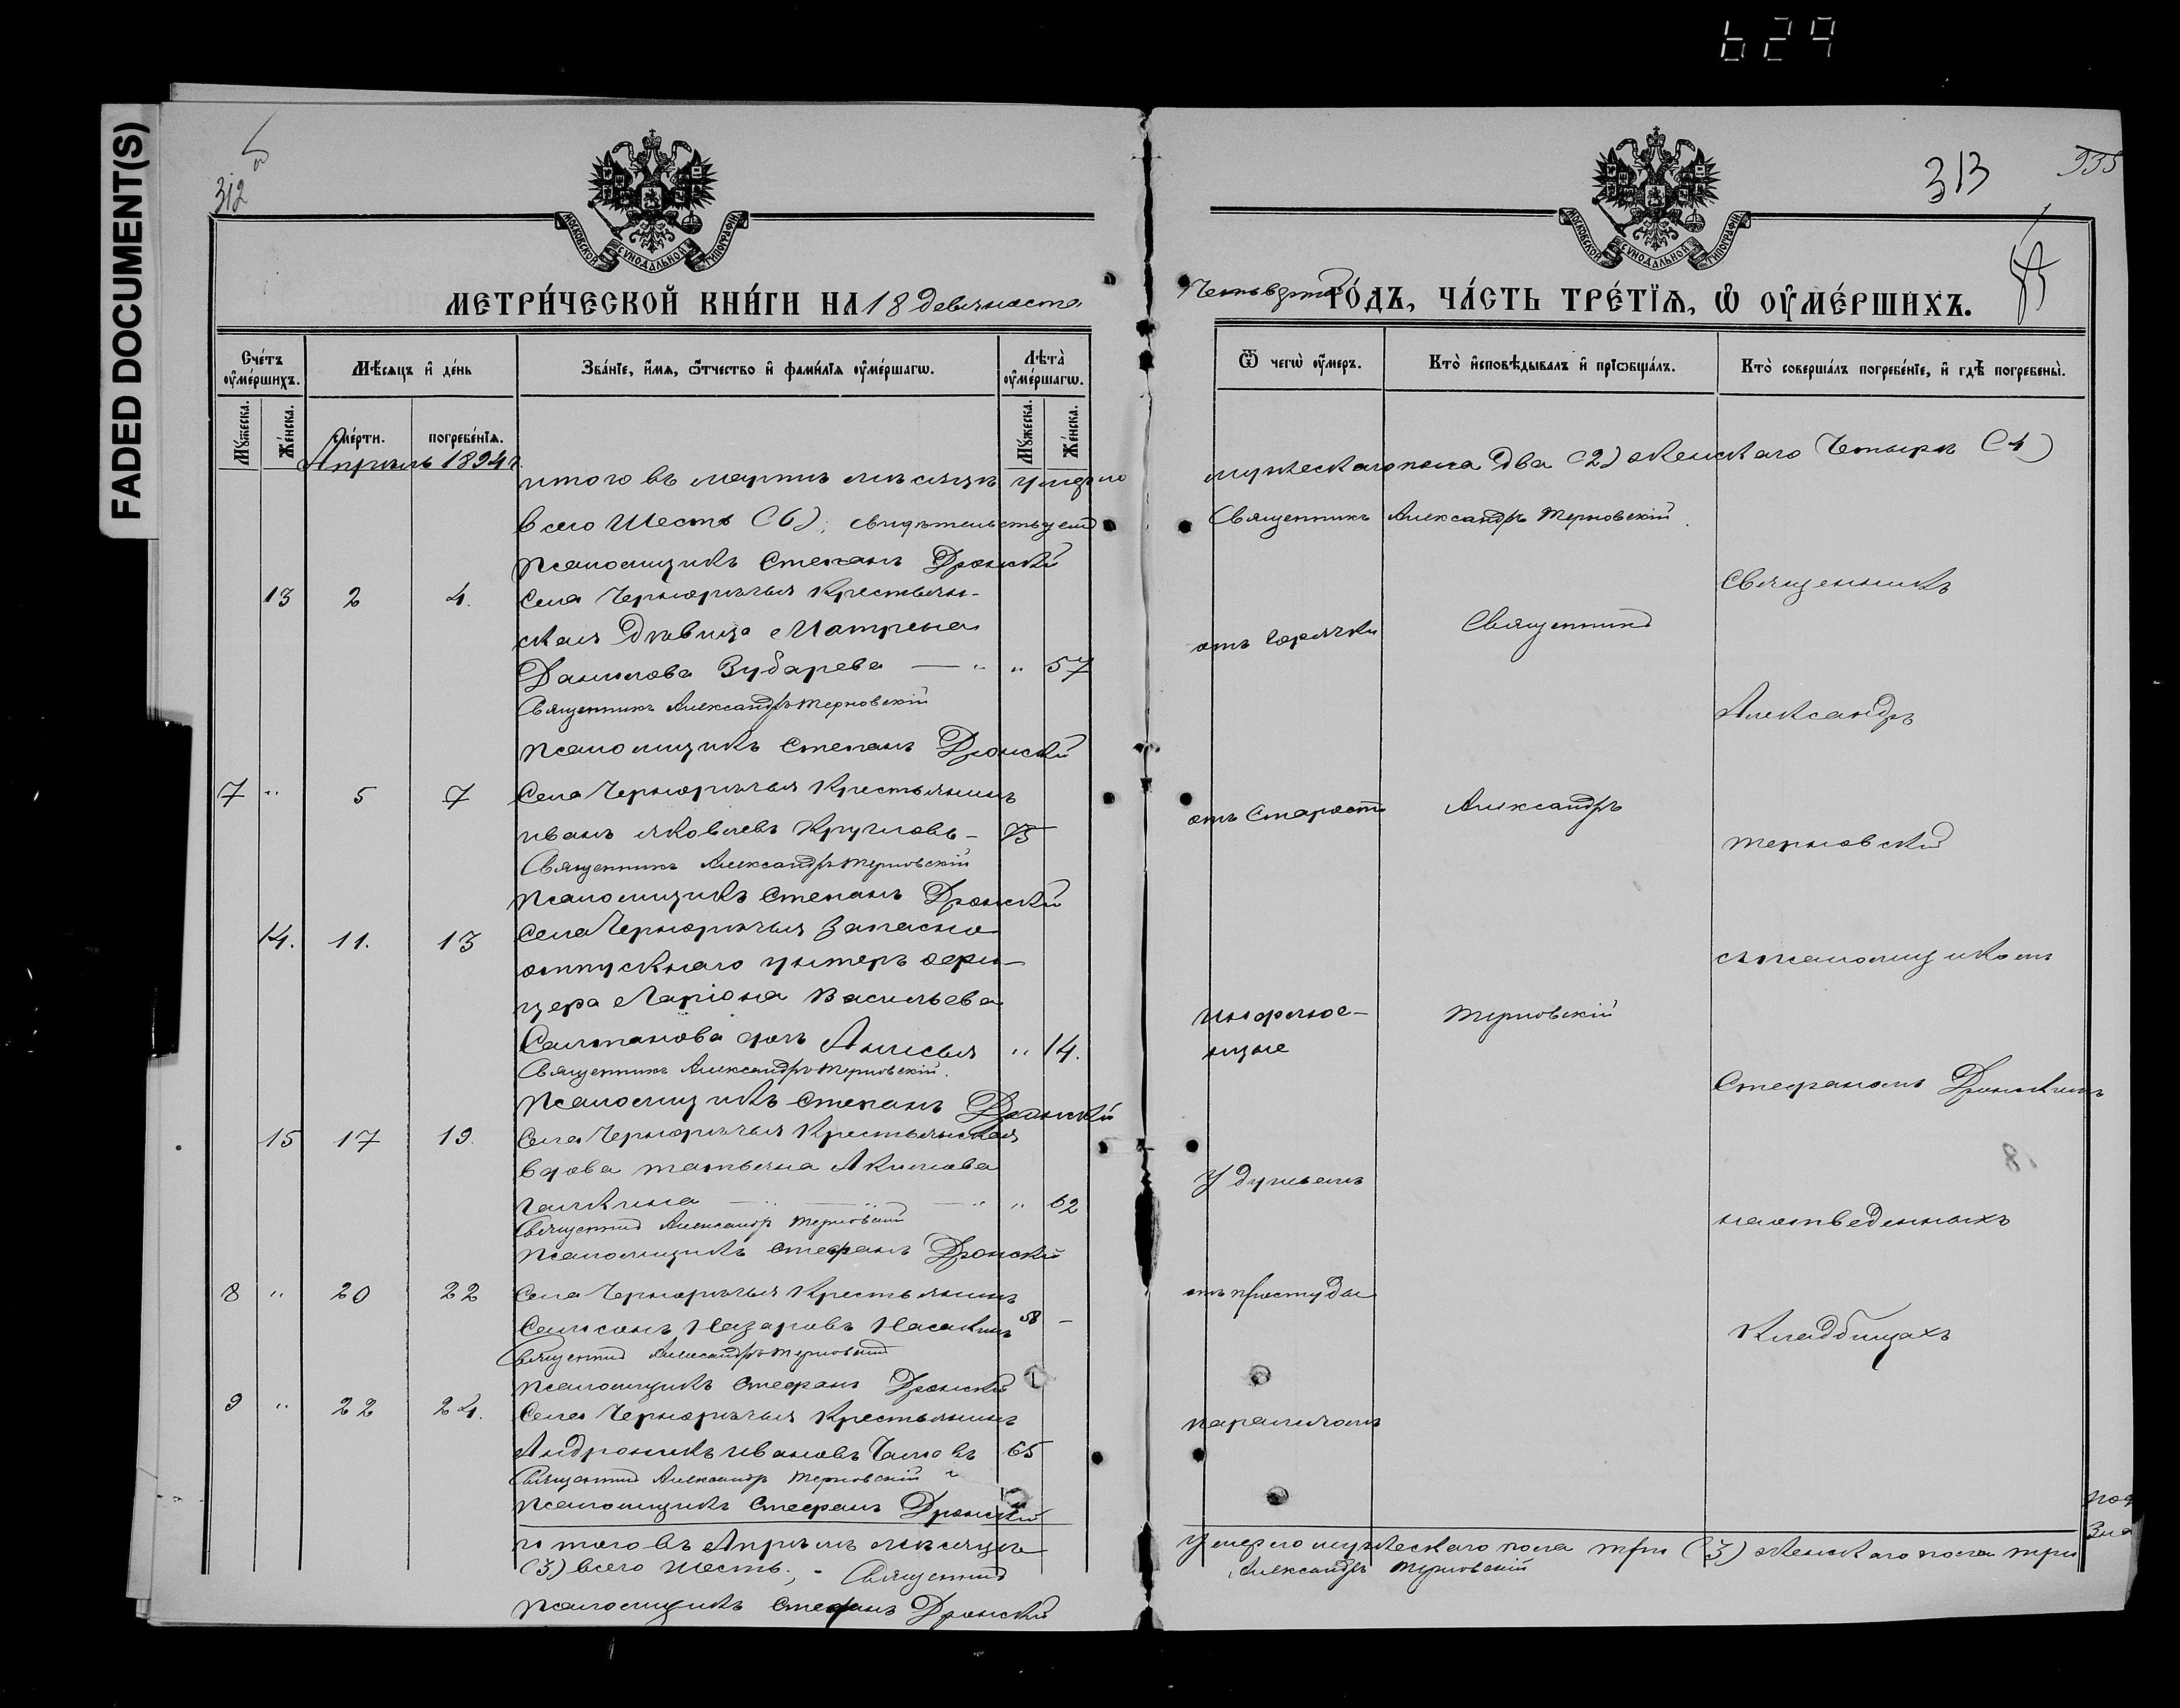 629
FADED DOCUMENT(S)
312
МОСКОВСКОЙ СѴНОДАЛЬНОЙ ТИПОГРАФІИ
МЕТРИ́ЧЕСКОЙ КНИ́ГИ НА 18 девяносто
Сче́тъ оу҆ме́ршихъ.
Мѣ́сяцъ и҆ де́нь
Зва́нїе, и҆́мя, ѻ҆́тчество и҆ фами́лїя оу҆ме́ршагѡ.
Лѣта̀ оу҆ме́ршагѡ.
Мꙋ́жеска.
Же́нска.
сме́рти.
погребе́нїя.
Мꙋ́жеска.
Же́нска.
Апрѣль 1894 г.
итого въ мартѣ мѣсяцѣ умерло
всего Шесть (6), свидѣтельствуемъ
псаломщикъ Степанъ Дронскій
13 2 4. Села Чернорѣчья Крестьян-
ская Дѣвица Матрена
Данилова Зубарева — " " 57
Священникъ Александръ Терновскій
псаломщикъ Степанъ Дронскій
7 " 5 7 Села Чернорѣчья Крестьянинъ
иванъ яковлевъ Кругловъ - 75
Священникъ Александръ Терновскій
псаломщикъ Степанъ Дронскій
14. 11. 13 Села Чернорѣчья Запасно
отпускнаго унтеръ офи-
цера Ларіона Васильева
Салтанова дочь Анисья " 14.
Священникъ Александръ Терновскій.
псаломщикъ Степанъ Дронскій
15 17 19. Села Чернорѣчья Крестьянская
вдова татьяна Акимова
галкина — " — " — " " 62
Священникъ Александръ Терновскій
псаломщикъ Стефанъ Дронскій
8 " 20 22 Села Чернорѣчья Крестьянинъ
Самсонъ Назаровъ 58 —
Священникъ Александръ Терновскій
псаломщикъ Стефанъ Дронскій
9 " 22 24. Села Чернорѣчья Крестьянинъ
Андроникъ ивановъ 65
Священникъ Александръ Терновскій
псаломщикъ Стефанъ Дронскій
итого въ Апрѣлѣ мѣсяцѣ
(3) всего Шесть.; - Священникъ
псаломщикъ Стефанъ Дронскій
313
935
МОСКОВСКОЙ СѴНОДАЛЬНОЙ ТИПОГРАФІИ
Четвертой ГО́ДЪ, ЧА́СТЬ ТРЕ́ТЇЯ, Ѡ҆ ОУ҆МЕ́РШИХЪ.
Ѿ чегѡ̀ оу҆́меръ.
Кто̀ и҆сповѣ́дывалъ и҆ прїѡбща́лъ.
Кто̀ соверша́лъ погребе́нїе, и҆ гдѣ̀ погребены̀.
мужескаго пола два (2) женскаго Четыре (4)
Священникъ Александръ Терновскій.
Священникъ
отъ горячки Священникъ
Александръ
отъ Старости Александръ
терновскій
съ псаломщикомъ
инфлюе-
нцые Терновскій
Стефаномъ Дронскимъ
Удушьемъ
на отведенныхъ
отъ простуды
Кладбищахъ
параличомъ
умерло мужескаго пола три (3) женскаго пола три
Александръ Терновскій